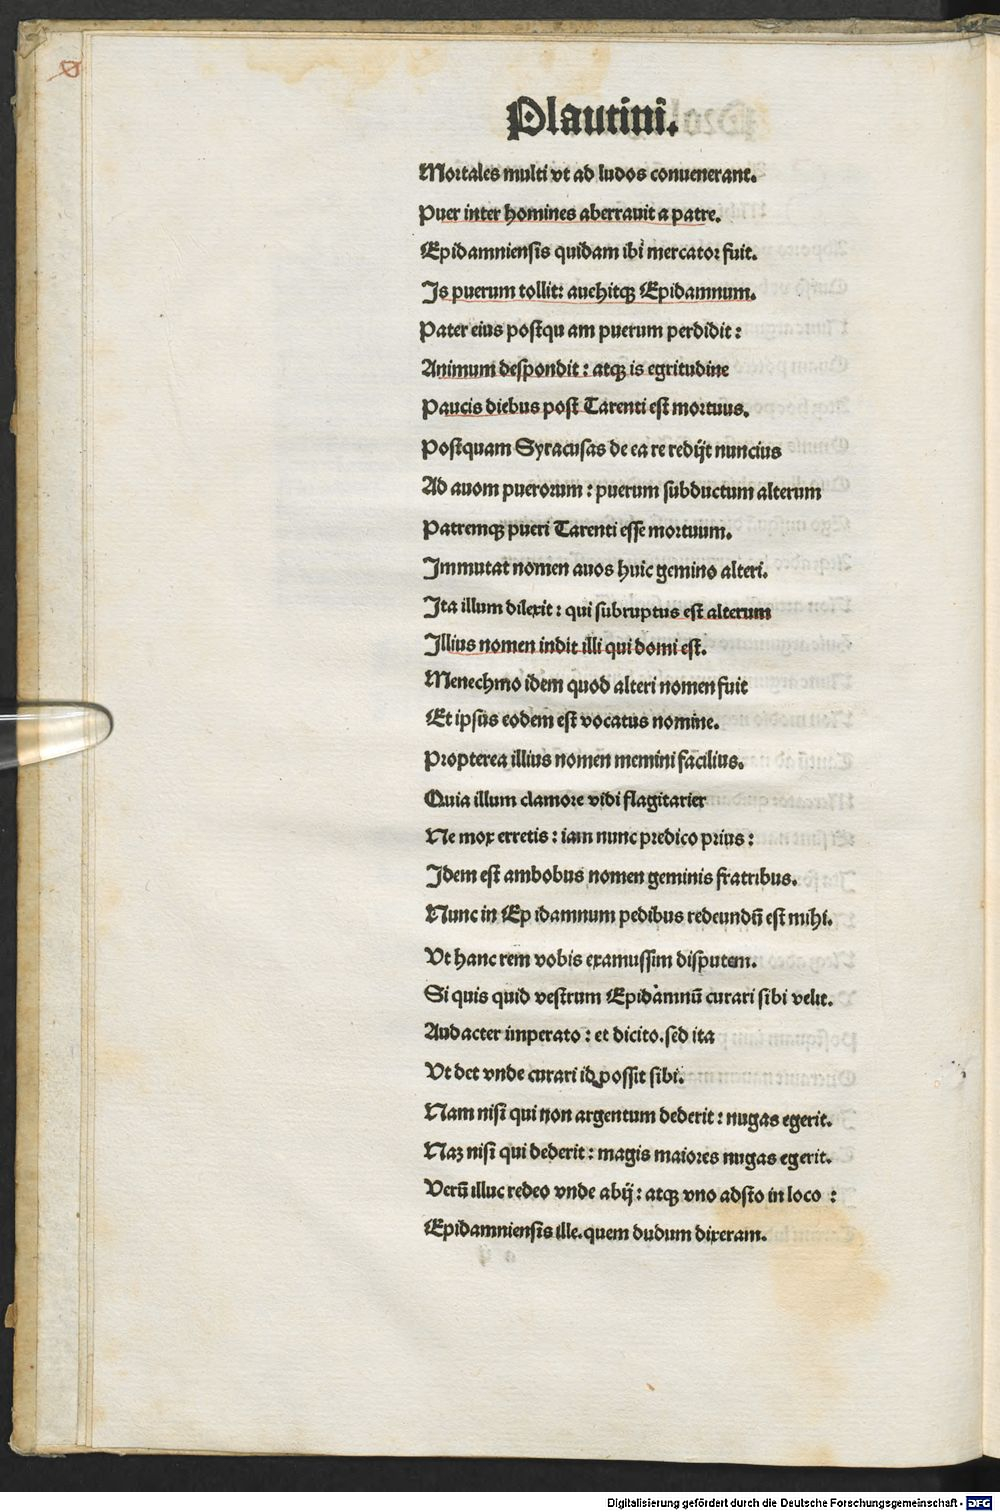 Plautini.
Mortales multi vt ad ludos conuenerant.
Puer inter homines aberrauit a patre.
Epidamniensis quidam ibi mercator fuit.
Is puerum tollit: auehitqꝫ Epidamnum.
Pater eius postqu am puerum perdidit:
Animum despondit: atqꝫ is egritudine
Paucis diebus post Tarenti est mortuus.
Postquam Syracusas de ea re redijt nuncius
Ad auom puerorum: puerum subductum alterum
Patremqꝫ pueri Tarenti esse mortuum.
Immutat nomen auos huic gemino alteri.
Ita illum dilexit: qui subruptus est alterum
Illius nomen indit illi qui domi est.
Menechmo idem quod alteri nomen fuit
Et ipsus eodem est vocatus nomine.
Propterea illius nomen memini facilius.
Quia illum clamore vidi flagitarier
Ne mox erretis: iam nunc predico prius:
Idem est ambobus nomen geminis fratribus.
Nunc in Ep idamnum pedibus redeundū est mihi.
Vt hanc rem vobis examussim disputem.
Si quis quid vestrum Epidamnū curari sibi velit.
Audacter imperato: et dicito. sed ita
Vt det vnde curari id possit sibi.
Nam nisi qui non argentum dederit: nugas egerit.
Naꝫ nisi qui dederit: magis maiores nugas egerit.
Verū illuc redeo vnde abij: atqꝫ vno adsto in loco :
Epidamniensis ille. quem dudum dixeram.
Digitalisierung gefördert durch die Deutsche Forschungsgemeinschaft - DFG